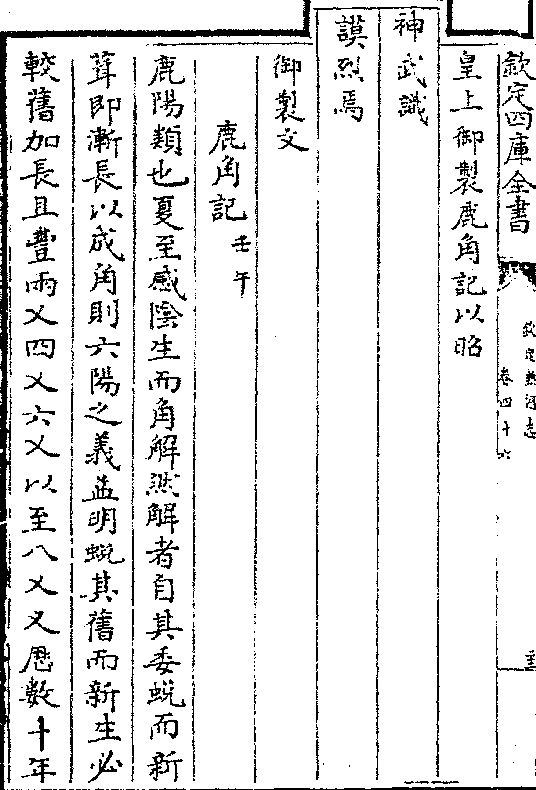 欽定四庫全書
欽定熱河志
卷四十六
皇上御製鹿角記以昭
神武識
謨烈焉
御製文
鹿角記壬午
鹿陽類也夏至感陰生而角解然解者自其委蛻而新
茸即漸長以成角則六陽之義益明蛻其舊而新生必
較舊加長且豐兩乂四乂六乂以至八乂又歷數十年